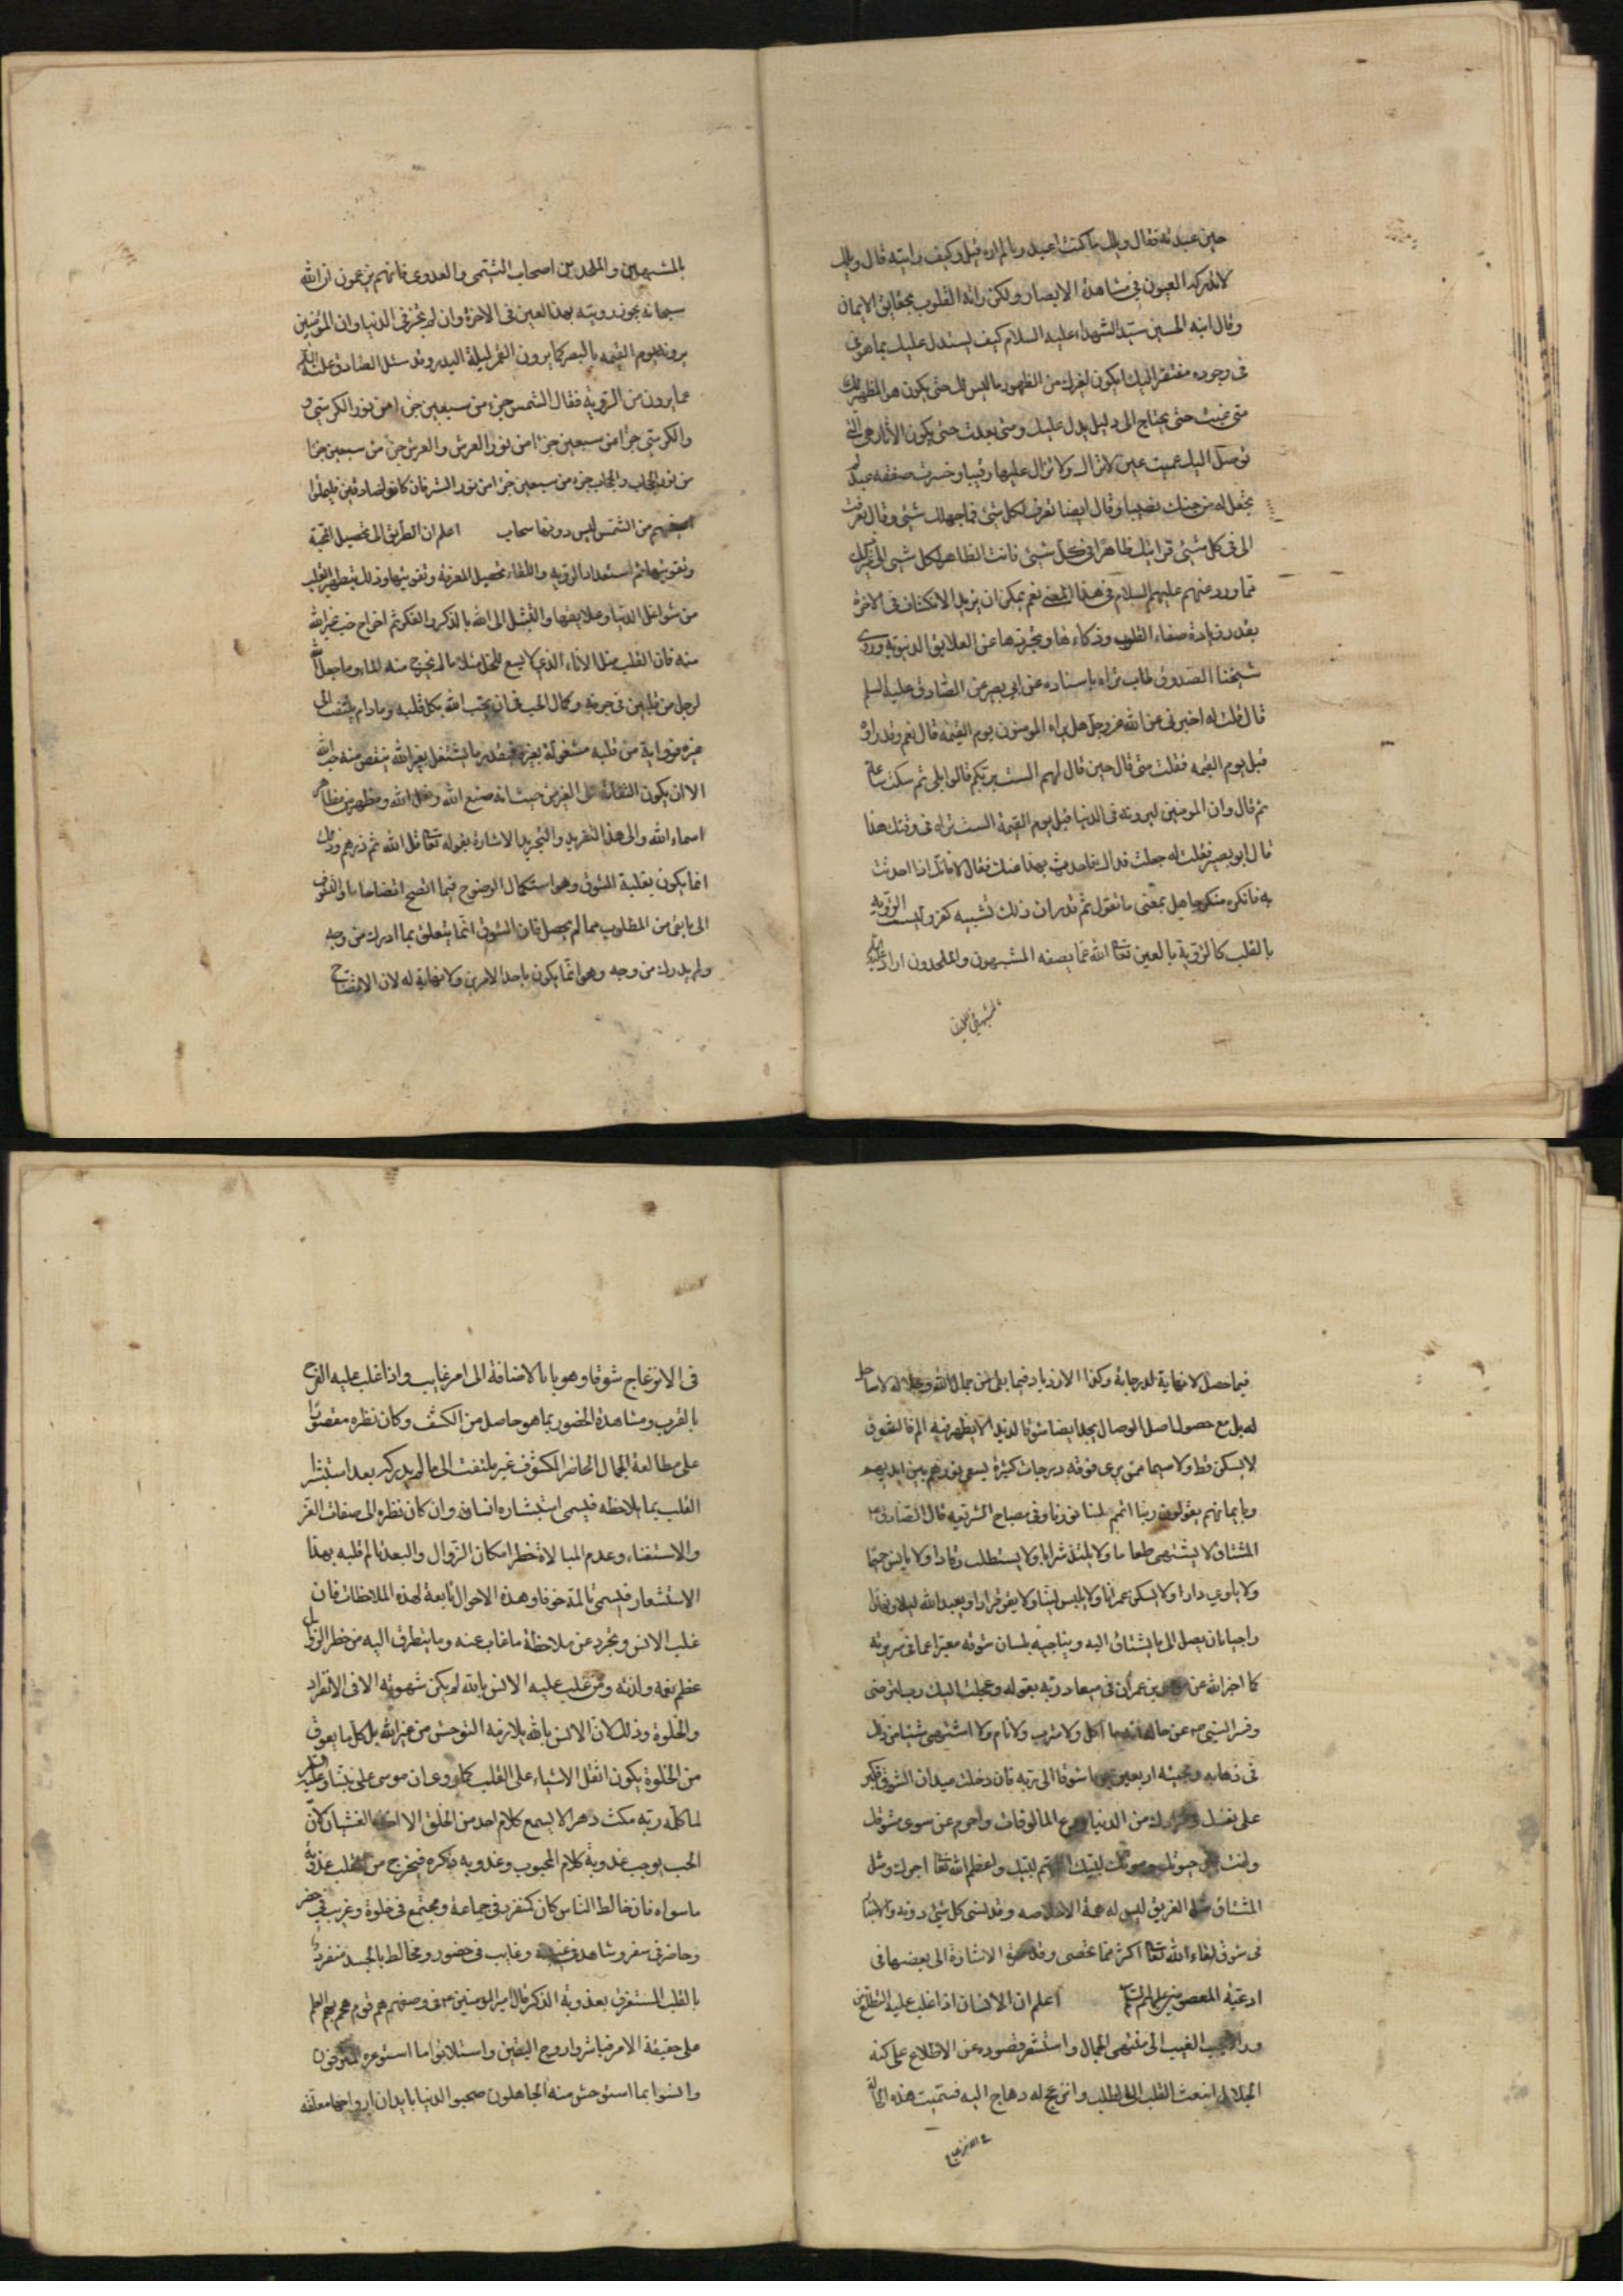 حين عبدته فقال ويلك ما كنت اعبد ربا لم اره قيل وكيف رايته قال ويلك
لا تدركه العيون في مشاهدة الابصار ولكن راته القلوب بحقايق الايمان
وقال ابنه الحسين سيد الشهداء عليه السلام كيف يستدل عليك بما هو
في وجوده مفتقر اليك ايكون لغيرك من الظهور ما ليس لك حتى يكون هو المظهر لك
متى غبت حتى تحتاج الى دليل يدل عليك ومتى بعدت حتى يكون الاثار هي التي
توصل اليك عميت عين لا تراك ولا تزال عليها رقيبا وخسرت صفقة عبد لم
تجعل له من حبك نصيبا وقال ايضا تعرفت لكل شئ فما جهلك شئ وقال تعرفت
الى في كل شئ فرايتك ظاهرا في كل شئ فانت الظاهر لكل شئ الى غير ذلك
مما ورد عنهم عليهم السلام في هذا المعنى نعم يمكن ان يزيد الانكشاف في الاخرة
بقدر زيادة صفاء القلوب وذكاءها وتجردها عن العلايق الدنيوية وروى
شيخنا الصدوق طاب ثراه باسناده عن ابي بصير عن الصادق عليه السلم
قال قلت له اخبرني عن الله عز وجل هل يراه المومنون يوم القيمة قال نعم وقد راوه
قبل يوم القيمه فقلت متى قال حين قال لهم الست بربكم قالوا بلى ثم سكت ساعة
ثم قال وان المومنين ليرونه في الدنيا قبل يوم القيمة الست تراه في وقتك هذا
قال ابو بصير فقلت له جعلت فداك فاحدث بهذا عنك فقال لا فانك اذا حدثت
به فانكره منكر جاهل بمعنى ما تقول ثم قدر ان ذلك تشبيه كفر وليست الرؤية
بالقلب كالرؤية بالعين تعا الله عما يصفه المشبهون والملحدون اراد عليه السلم
بالمشبهين والملحدين
بالمشبهين والملحدين اصحاب التيمى والعدوى فانهم يزعمون ان الله
سبحانه يجوز رويته بهذا العين في الاخرة وان لم يجز في الدنيا وان المؤمنين
يرونه يوم القيمه بالبصر كما يرون القمر ليلة البدر وقد سئل الصادق عليه السلم
عما يرون من الرؤية فقال الشمس جزء من سبعين جزءا من نور الكرسي
والكرسي جزء من سبعين جزءا من نور العرش والعرش جزء من سبعين جزءا
من نور الحجاب والحجاب جزء من سبعين جزءا من نور الستر فان كانوا صادقين فليملؤا
اعينهم من الشمس ليس دونها سحاب اعلم ان الطريق الى تحصيل المحبة
وتقويتها ثم استعداد الرؤية واللقاء تحصيل المعرفة وتقويتها وذلك بتطهير القلب
من شواغل الدنيا وعلايقها والتبتل الى الله بالذكر والفكر ثم اخراج حب غير الله
منه فان القلب مثل الاناء الذي لا يسع للخل مثلا ما لم يخرج منه الماء وما جعل الله
لرجل من قلبين في جوفه وكمال الحب في ان يحب الله بكل قلبه وما دام يلتفت الى
غيره فزاوية من قلبه مشغولة بغيره فبقدر ما يشتغل بغير الله ينقص منه حب الله
الا ان يكون التفاته الى الغير من حيث انه صنع الله وفعل الله ومظهر من مظاهر
اسماء الله والى هذا التفريد والتجريد الاشارة بقوله تعا قل الله ثم ذرهم وذلك
انما يكون بغلبة الشوق وهو استكمال الوضوح فيما اتضح اتضاحا ما والشوق
الى ما بقي من المطلوب مما لم يحصل فان الشوق انما يتعلق بما ادرك من وجه
ولم يدرك من وجه وهو انما يكون باحد الامرين ولا نهاية له لان الاتضاح
فيما حصل لا نهاية لدرجاته وكذا الازدياد فيما بقي من جمال الله وجلاله لا ساحل
له بل مع حصول اصل الوصال يجد ايضا شوقا لذيذا لا يظهر فيه الم فالشوق
لا يسكن قط ولا سيما ممن يرى فوقه درجات كثيرة يسعى نورهم بين ايديهم
وبايمانهم يقولون ربنا اتمم لنا نورنا وفي مصباح الشريعه قال الصادق ع
المشتاق لا يشتهى طعاما ولا يلتذ شرابا ولا يستطيب رقادا ولا يانس حميما
ولا ياوي دارا ولا يسكن عمرانا ولا يلبس لينا ولا يقر قرارا ويعبد الله ليلا ونهارا
راجيا بان يصل الى ما يشتاق اليه ويناجيه بلسان شوقه معبرا عما في سريرته
كما اخبر الله عن موسى بن عمران في ميعاد ربه بقوله وعجلت اليك رب لترضى
وفسر النبي ص عن حاله انه ما اكل ولا شرب ولا نام ولا اشتهى شيئا من ذلك
في ذهابه ومجيئه اربعين يوما شوقا الى ربه فان دخلت ميدان الشوق فكبر
على نفسك ومرادك من الدنيا وودع المالوفات واحرم عن سوى مشوقك
ولبّ بين حيوتك وموتك لبيك اللهم لبيك واعظم الله تعا اجرك ومثل
المشتاق مثل الغريق ليس له همة الا خلاصه وقد نسى كل شئ دونه والاخبار
في شوق لقاء الله تعا اكثر مما تحصى وقد مرت الاشارة الى بعضها في
ادعية المعصومين عليهم السلم اعلم ان الانسان اذا غلب عليه التطلع من
وراء حجب الغيب الى منتهى الجمال واستشعر قصوره عن الاطلاع على كنه
الجلال انبعث القلب الى الطلب وانزعج له وهاج اليه فسميت هذه الحالة
في الانزعاج
في الانزعاج شوقا وهو بالاضافة الى امر غايب واذا غلب عليه الفرح
بالقرب ومشاهدة الحضور بما هو حاصل من الكشف وكان نظره مقصورا
على مطالعة الجمال الحاضر المكشوف غير ملتفت الى ما لم يدركه بعد استبشر
القلب بما يلاحظه فيسمى استبشاره انسا وان كان نظره الى صفات العز
والاستغناء وعدم المبالاة وخطر امكان الزوال والبعد تالم قلبه بهذا
الاستشعار فيسمى تالمه خوفا وهذه الاحوال تابعة لهذه الملاحظات فان
غلب الانس وتجرد عن ملاحظة ما غاب عنه وما يتطرق اليه من خطر الزوال
عظم نعيمه ولذته ومن غلب عليه الانس بالله لم يكن شهوته الا في الانفراد
والخلوة وذلك لان الانس بالله يلازمه التوحش من غير الله بل كل ما يعوق
من الخلوة يكون اثقل الاشياء على القلب كما روى ان موسى على نبينا وعليه السلم
لما كلمه ربه مكث دهرا لا يسمع كلام احد من الخلق الا اخذه الغشيان لان
الحب يوجب عذوبة كلام المحبوب وعذوبة ذكره فيخرج من القلب عذوبة
ما سواه فان خالط الناس كان كمنفرد في جماعة ومجتمع في خلوة وغريب في حضر
وحاضر في سفر وشاهد في غيبة وغايب في حضور ومخالط بالجسد منفرد
بالقلب المستغرق بعذوبة الذكر قال امير المومنين ع في وصفهم هم قوم هجم بهم العلم
على حقيقة الامر فباشروا روح اليقين واستلانوا ما استوعره المترفون
وانسوا بما استوحش منه الجاهلون صحبوا الدنيا بابدان ارواحها معلقة